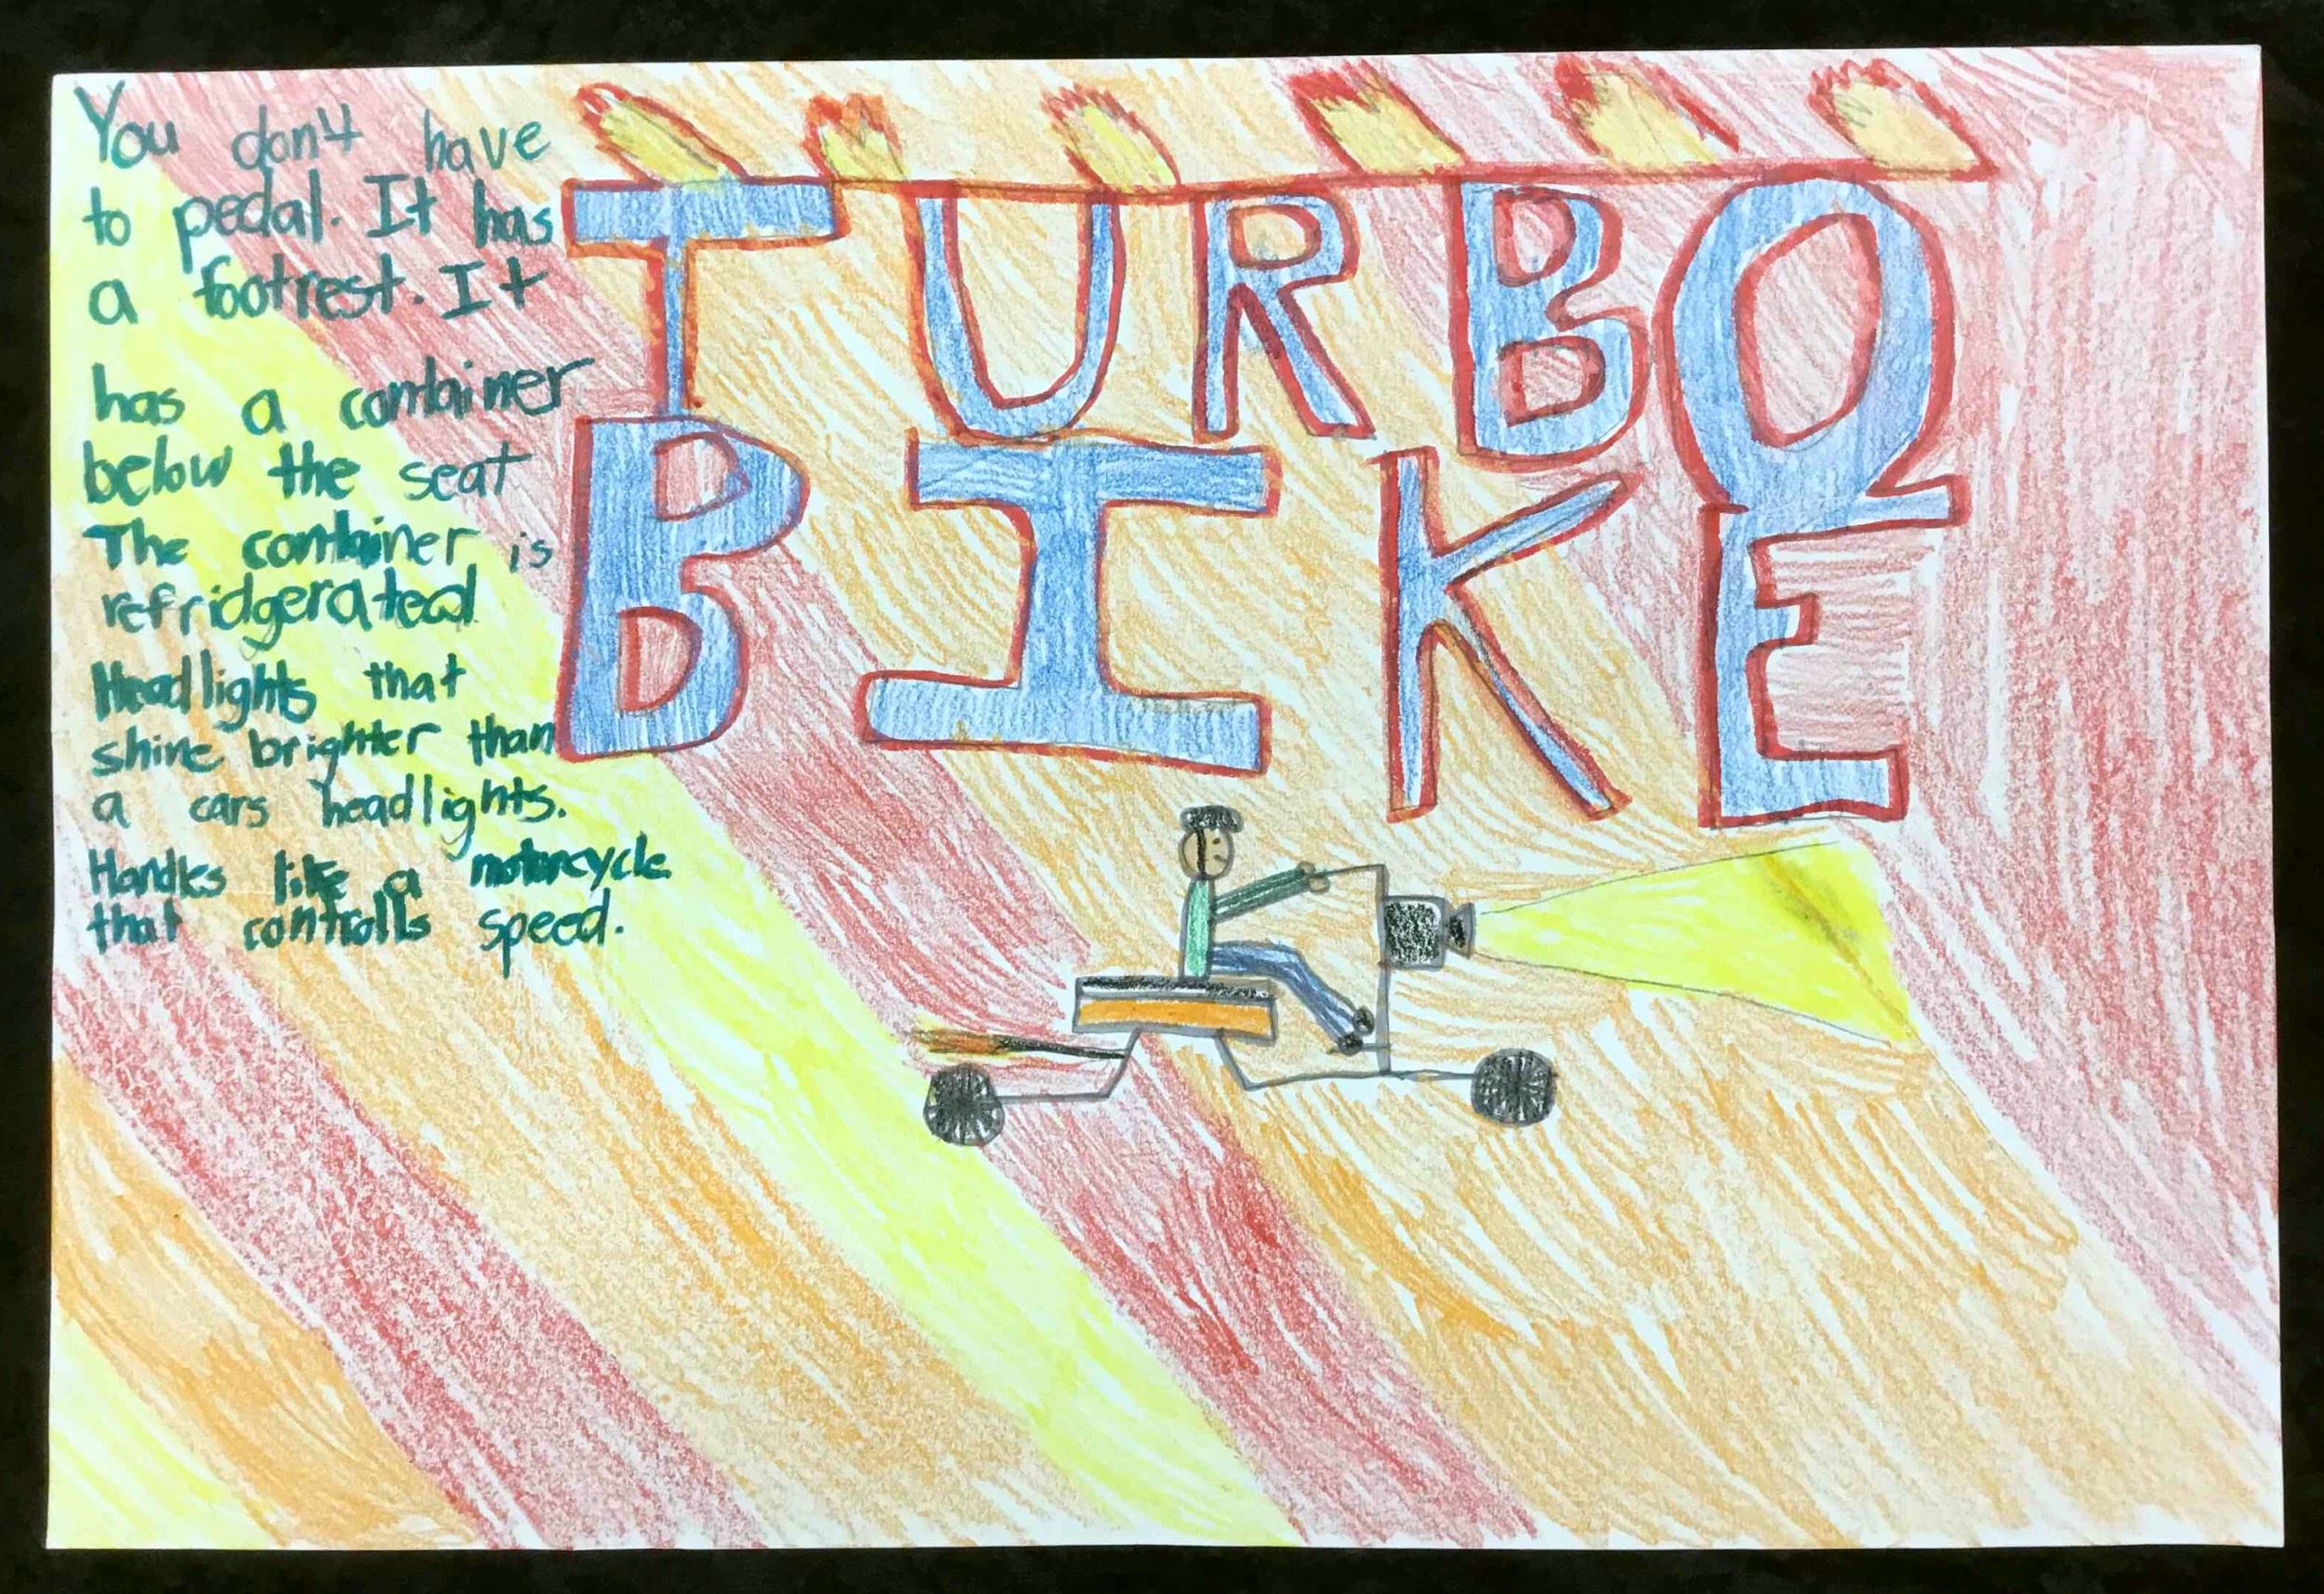 You don't have
to pedal. It has
a footrest. It
has a container
below the seat
The container is
refridgerated
Headlights that
shine brighter than
a cars headlights.
Handles like a motorcycle
that controlls speed.
TURBO
BIKE